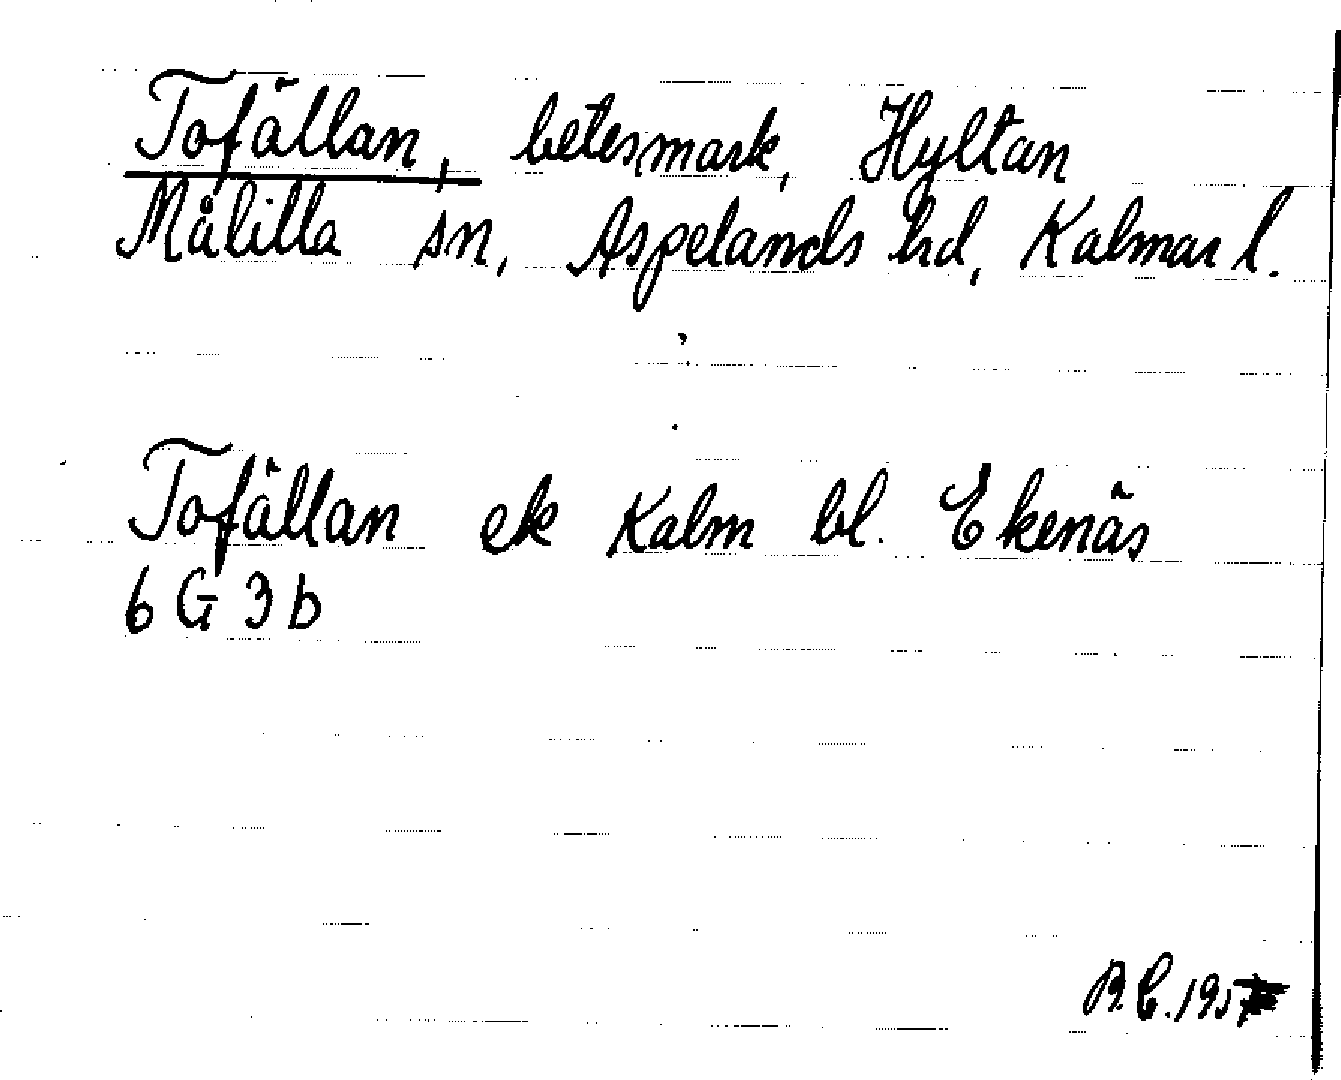 Tofällan, betesmark, Hyltan
Målilla sn, Aspelands hd, Kalmar l.
Tofällan ek Kalm bl. Ekenäs
6 G 3 b